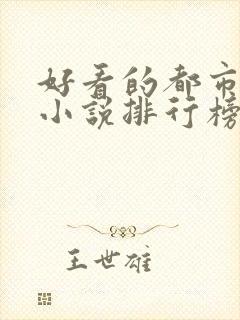 好看的都市
小说排行榜
王世雄